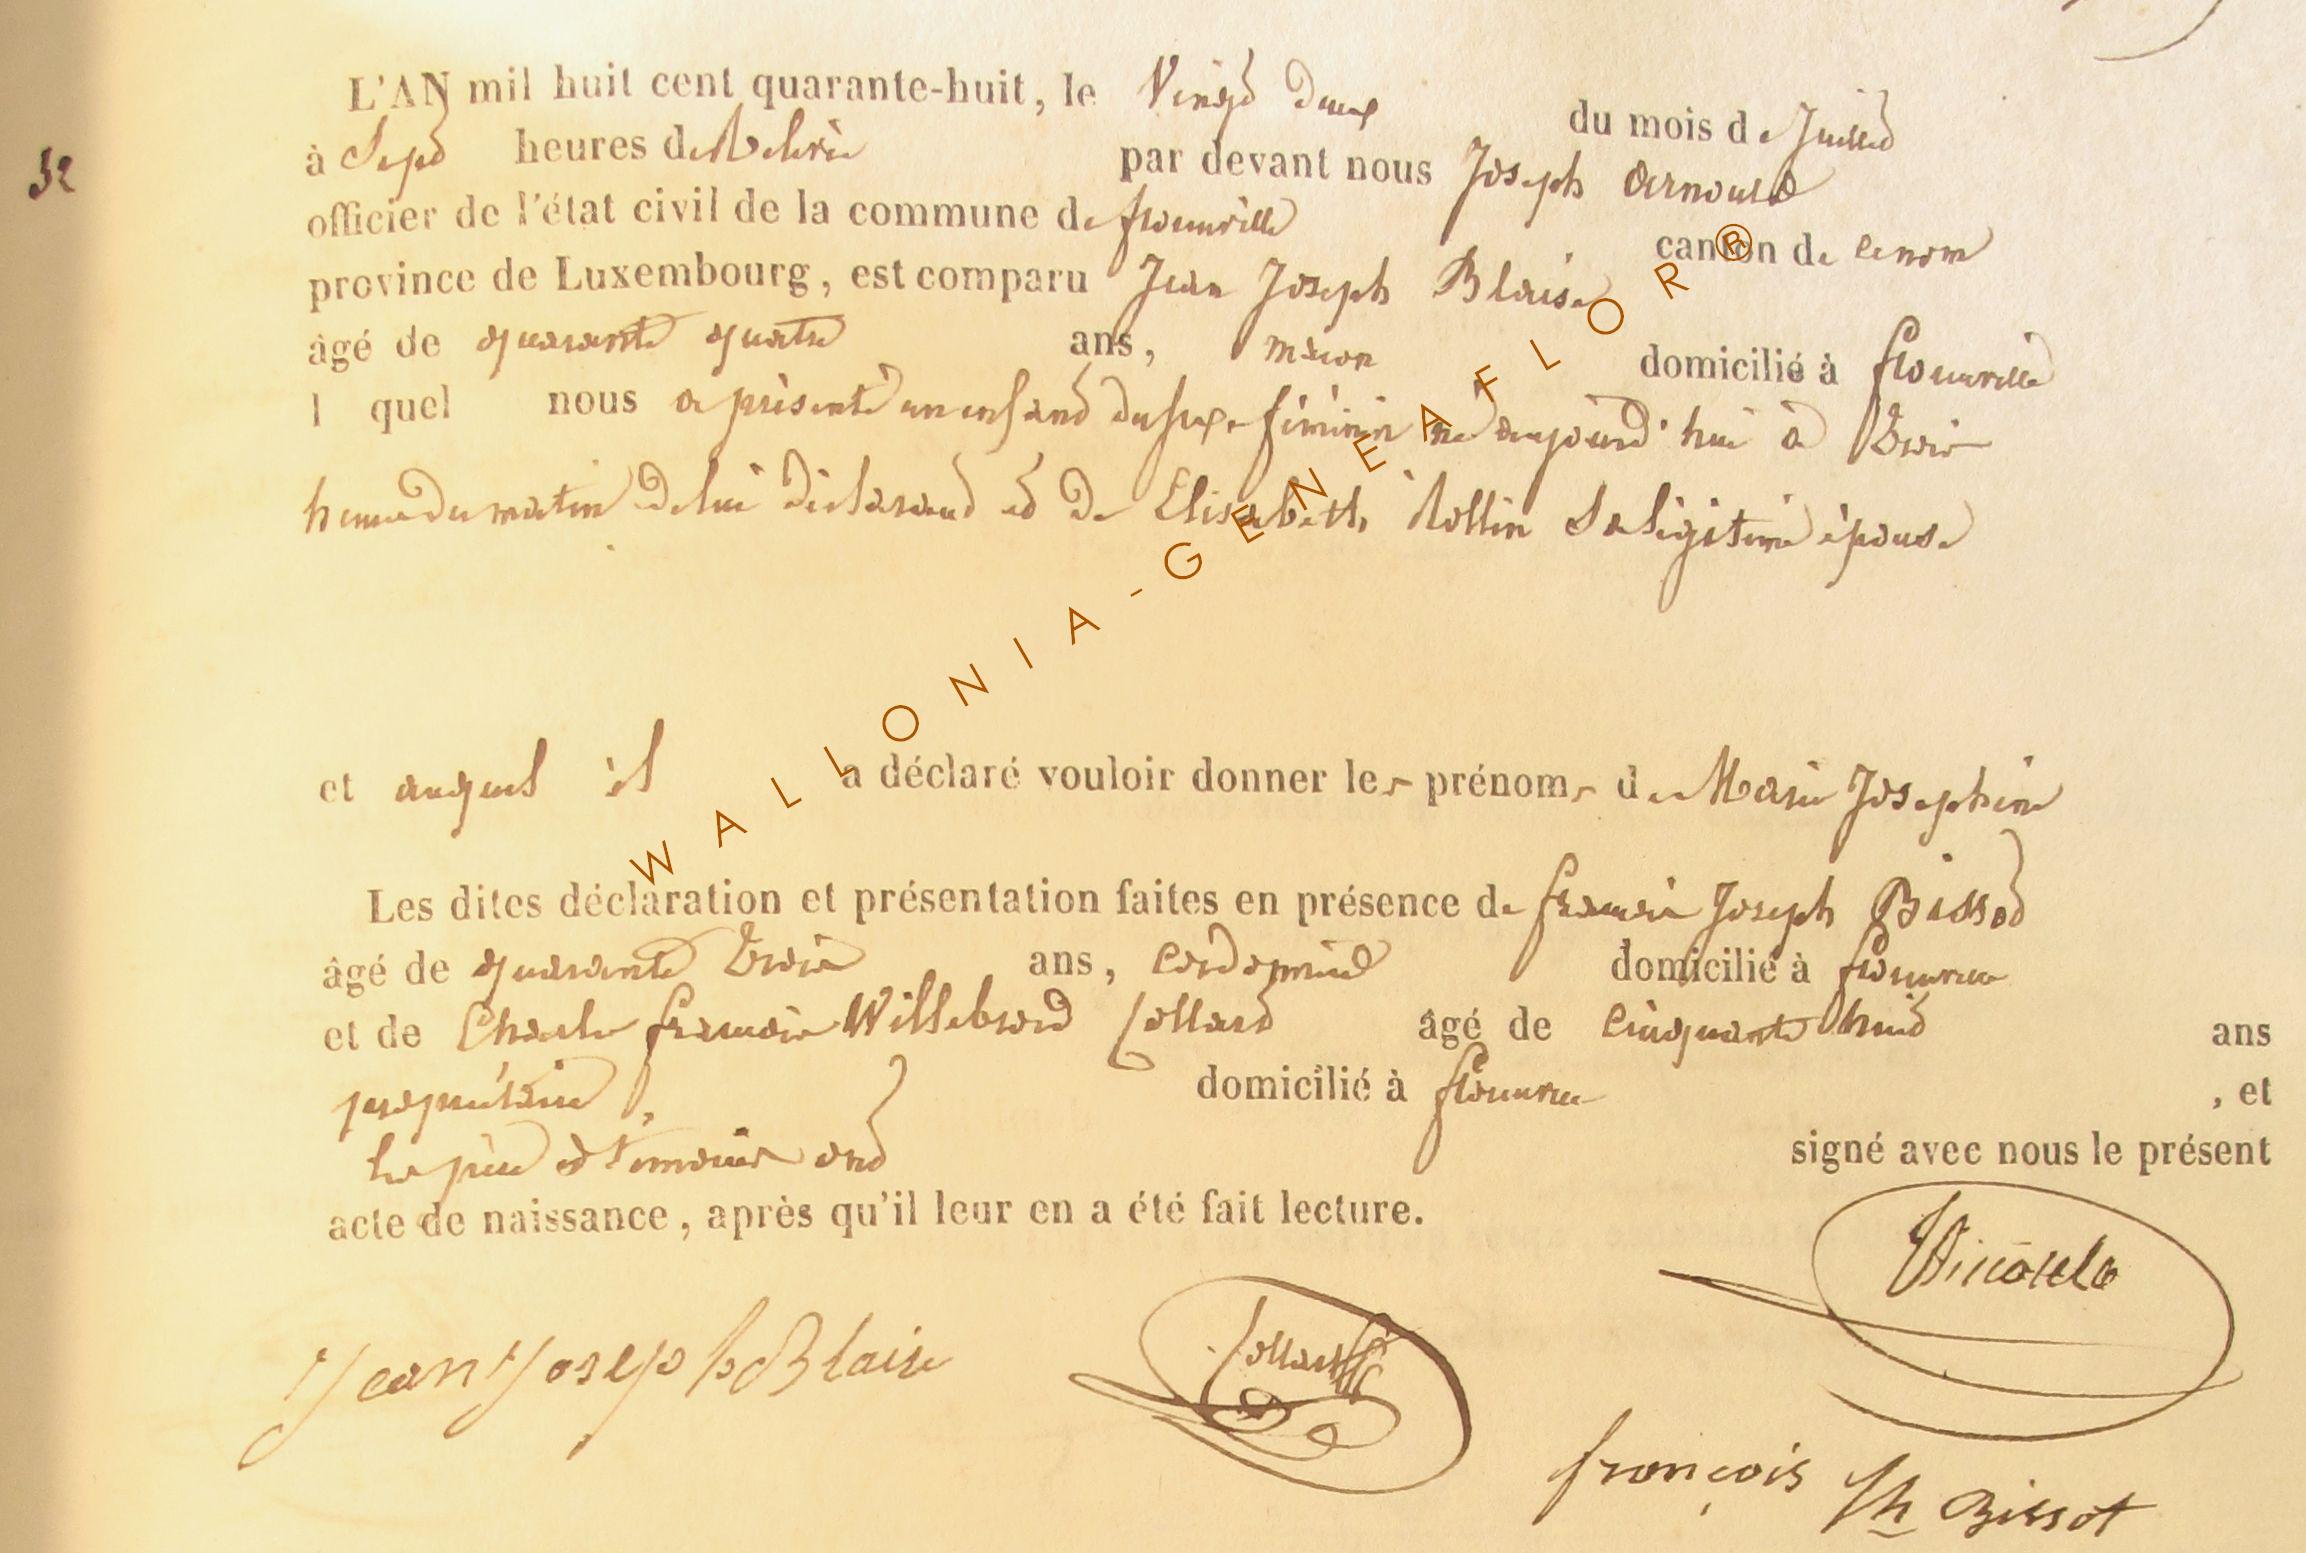 L'AN mil huit cent quarante-huit, le Vingt Deux du mois de Juillet
52
à Sept heures de Relevée par devant nous Joseph Arnould
officier de l'état civil de la commune de florenville canton de
province de Luxembourg, est comparu Jean Joseph Blaise
âgé de quarante quatre ans, maçon domicilié à florenville
l quel nous a présenté un enfant du sexe féminin né aujourd'hui à trois
heures du matin De lui Déclarant et De Elisabeth Rollin Sa légitime épouse
et auquel il a déclaré vouloir donner les prénoms de Marie Josephine
Les dites déclaration et présentation faites en présence de françois Joseph Bissot
âgé de quarante trois ans, cordonnier domicilié à florenville
et de Charles françois Willebrord Collard âgé de cinquante huit ans
propriétaire domicilié à florenville, et
les père et témoins ont signé avec nous le présent
acte de naissance, après qu'il leur en a été fait lecture.
Jean Joseph Blaise
Collard
françois Jh Bissot
WALLONIA-GENEAFLOR®